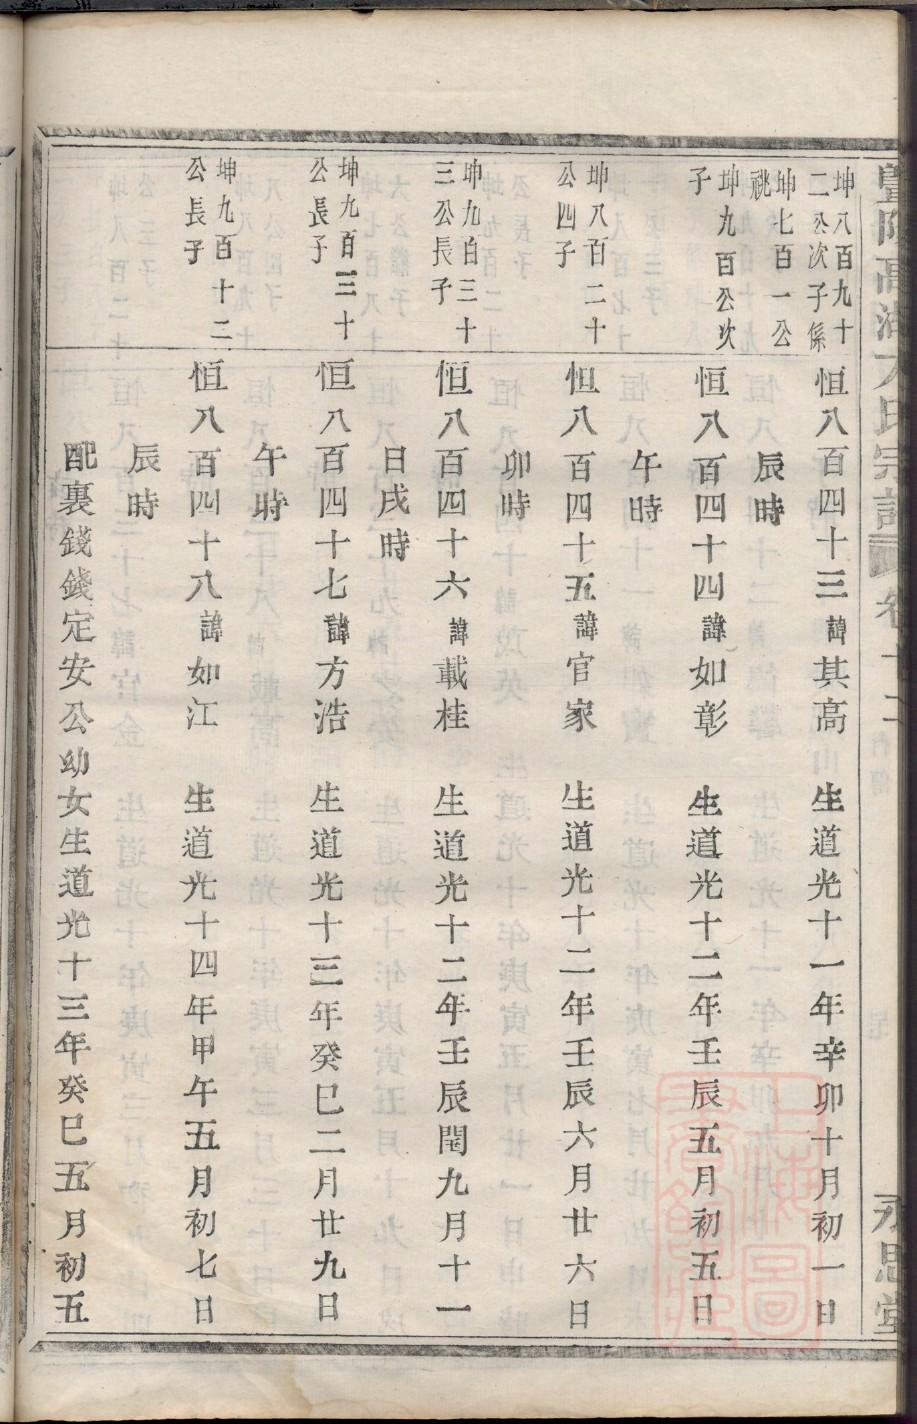 暨陽高湖
氏宗譜
卷十二
永思堂
坤八百九十
二公次子係
坤七百一公
祧
恒八百四十三諱其高 生道光十一年辛卯十月初一日
辰時
坤九百公次
子
恒八百四十四諱如彰 生道光十二年壬辰五月初五日
午時
坤八百二十
公四子
恒八百四十五諱官家 生道光十二年壬辰六月廿六日
卯時
坤九百三十
三公長子
恒八百四十六諱載桂 生道光十二年壬辰閏九月十一
日戌時
坤九百三十
公長子
恒八百四十七諱方浩 生道光十三年癸巳二月廿九日
午時
坤九百十二
公長子
恒八百四十八諱如江 生道光十四年甲午五月初七日
辰時
配裏錢錢定安公幼女生道光十三年癸巳五月初五